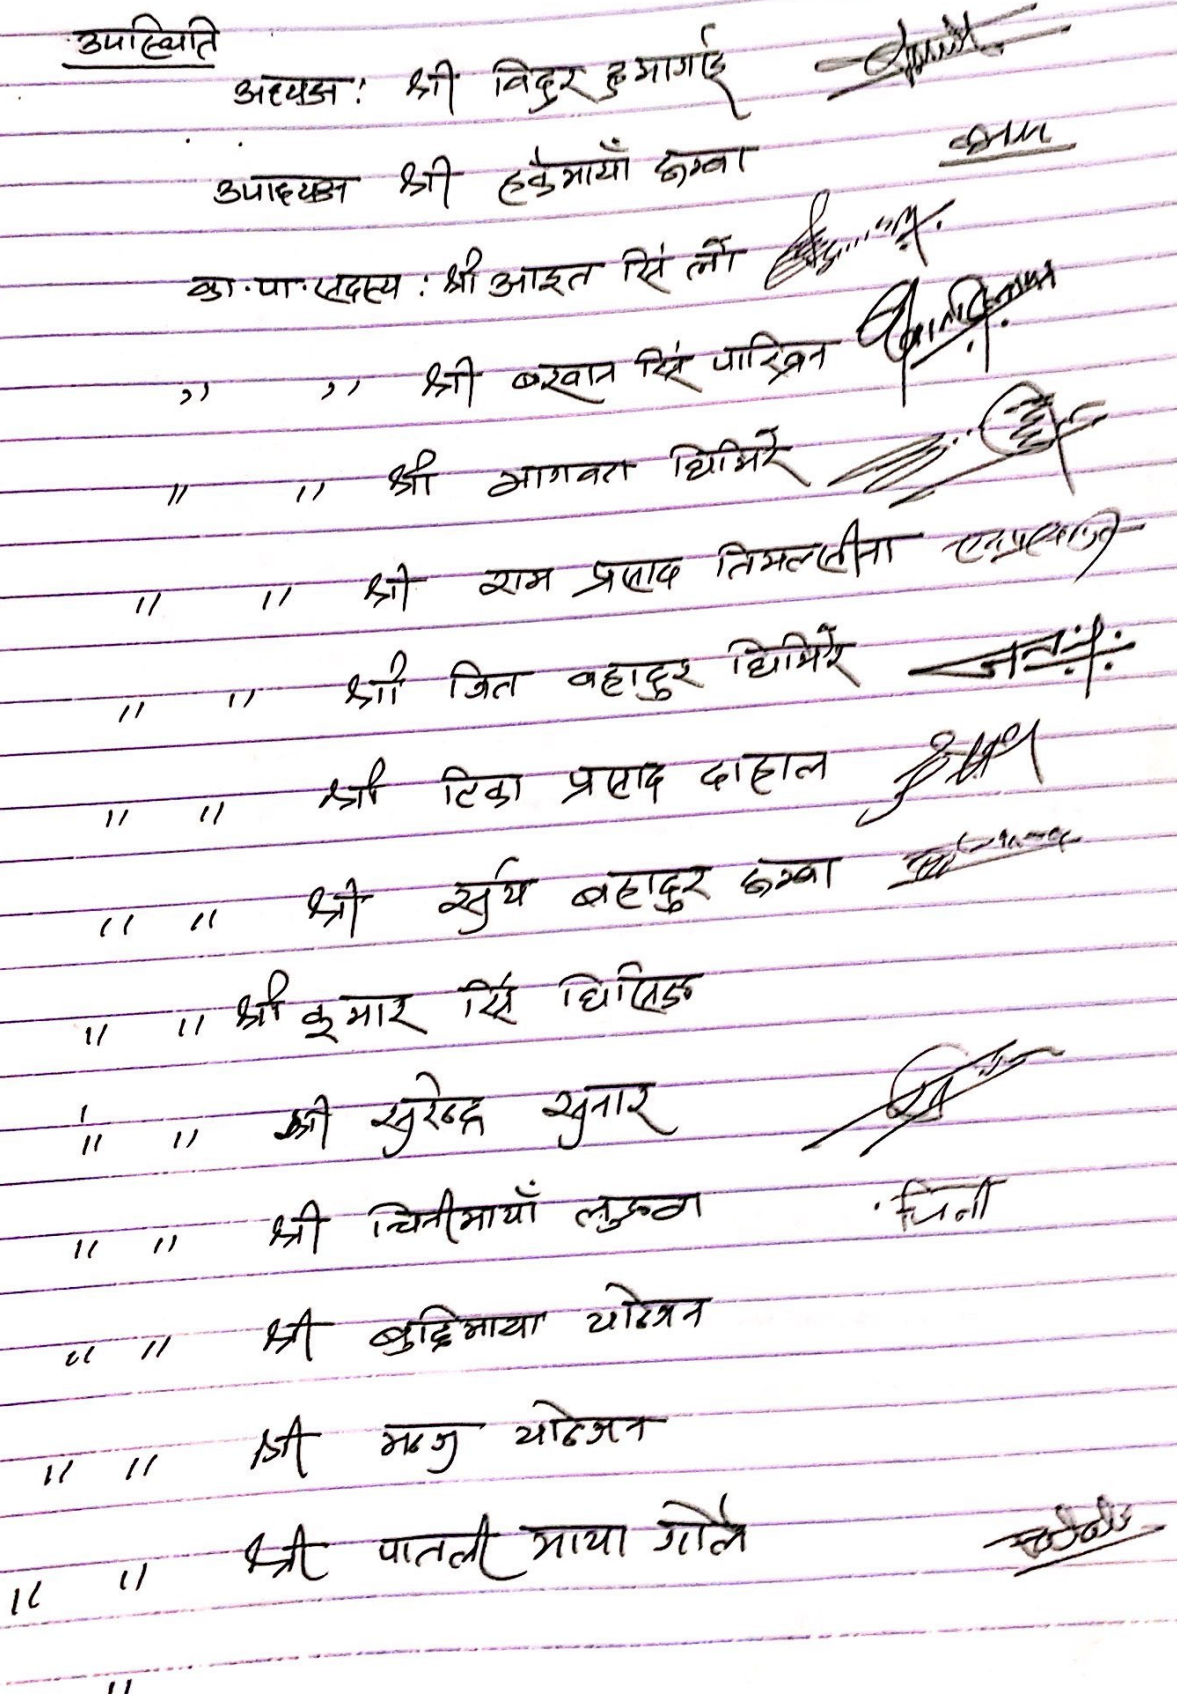 उपस्थिति
अध्यक्ष: श्री विदुर हुमागाई
उपाध्यक्ष श्री हर्कमायाँ लम्वा
का.पा.सदस्य: श्री आइत सिं लो
" " श्री बखान सिं पाख्रिन
" " श्री भागवत घिमिरे
" " श्री राम प्रसाद तिमल्सीना
" " श्री जित वहादुर घिमिरे जित
" " श्री टिका प्रसाद दाहाल
" " श्री सुर्य बहादुर लम्वा
" " श्री कुमार सिं घिसिङ
" " श्री सुरेन्द्र सुनार
" " श्री चिनीमायाँ लुङवा चिनी
" " श्री बुद्दिमाया योन्जन
" " श्री मन्जु योन्जन
" " श्री पातली माया गोले
"